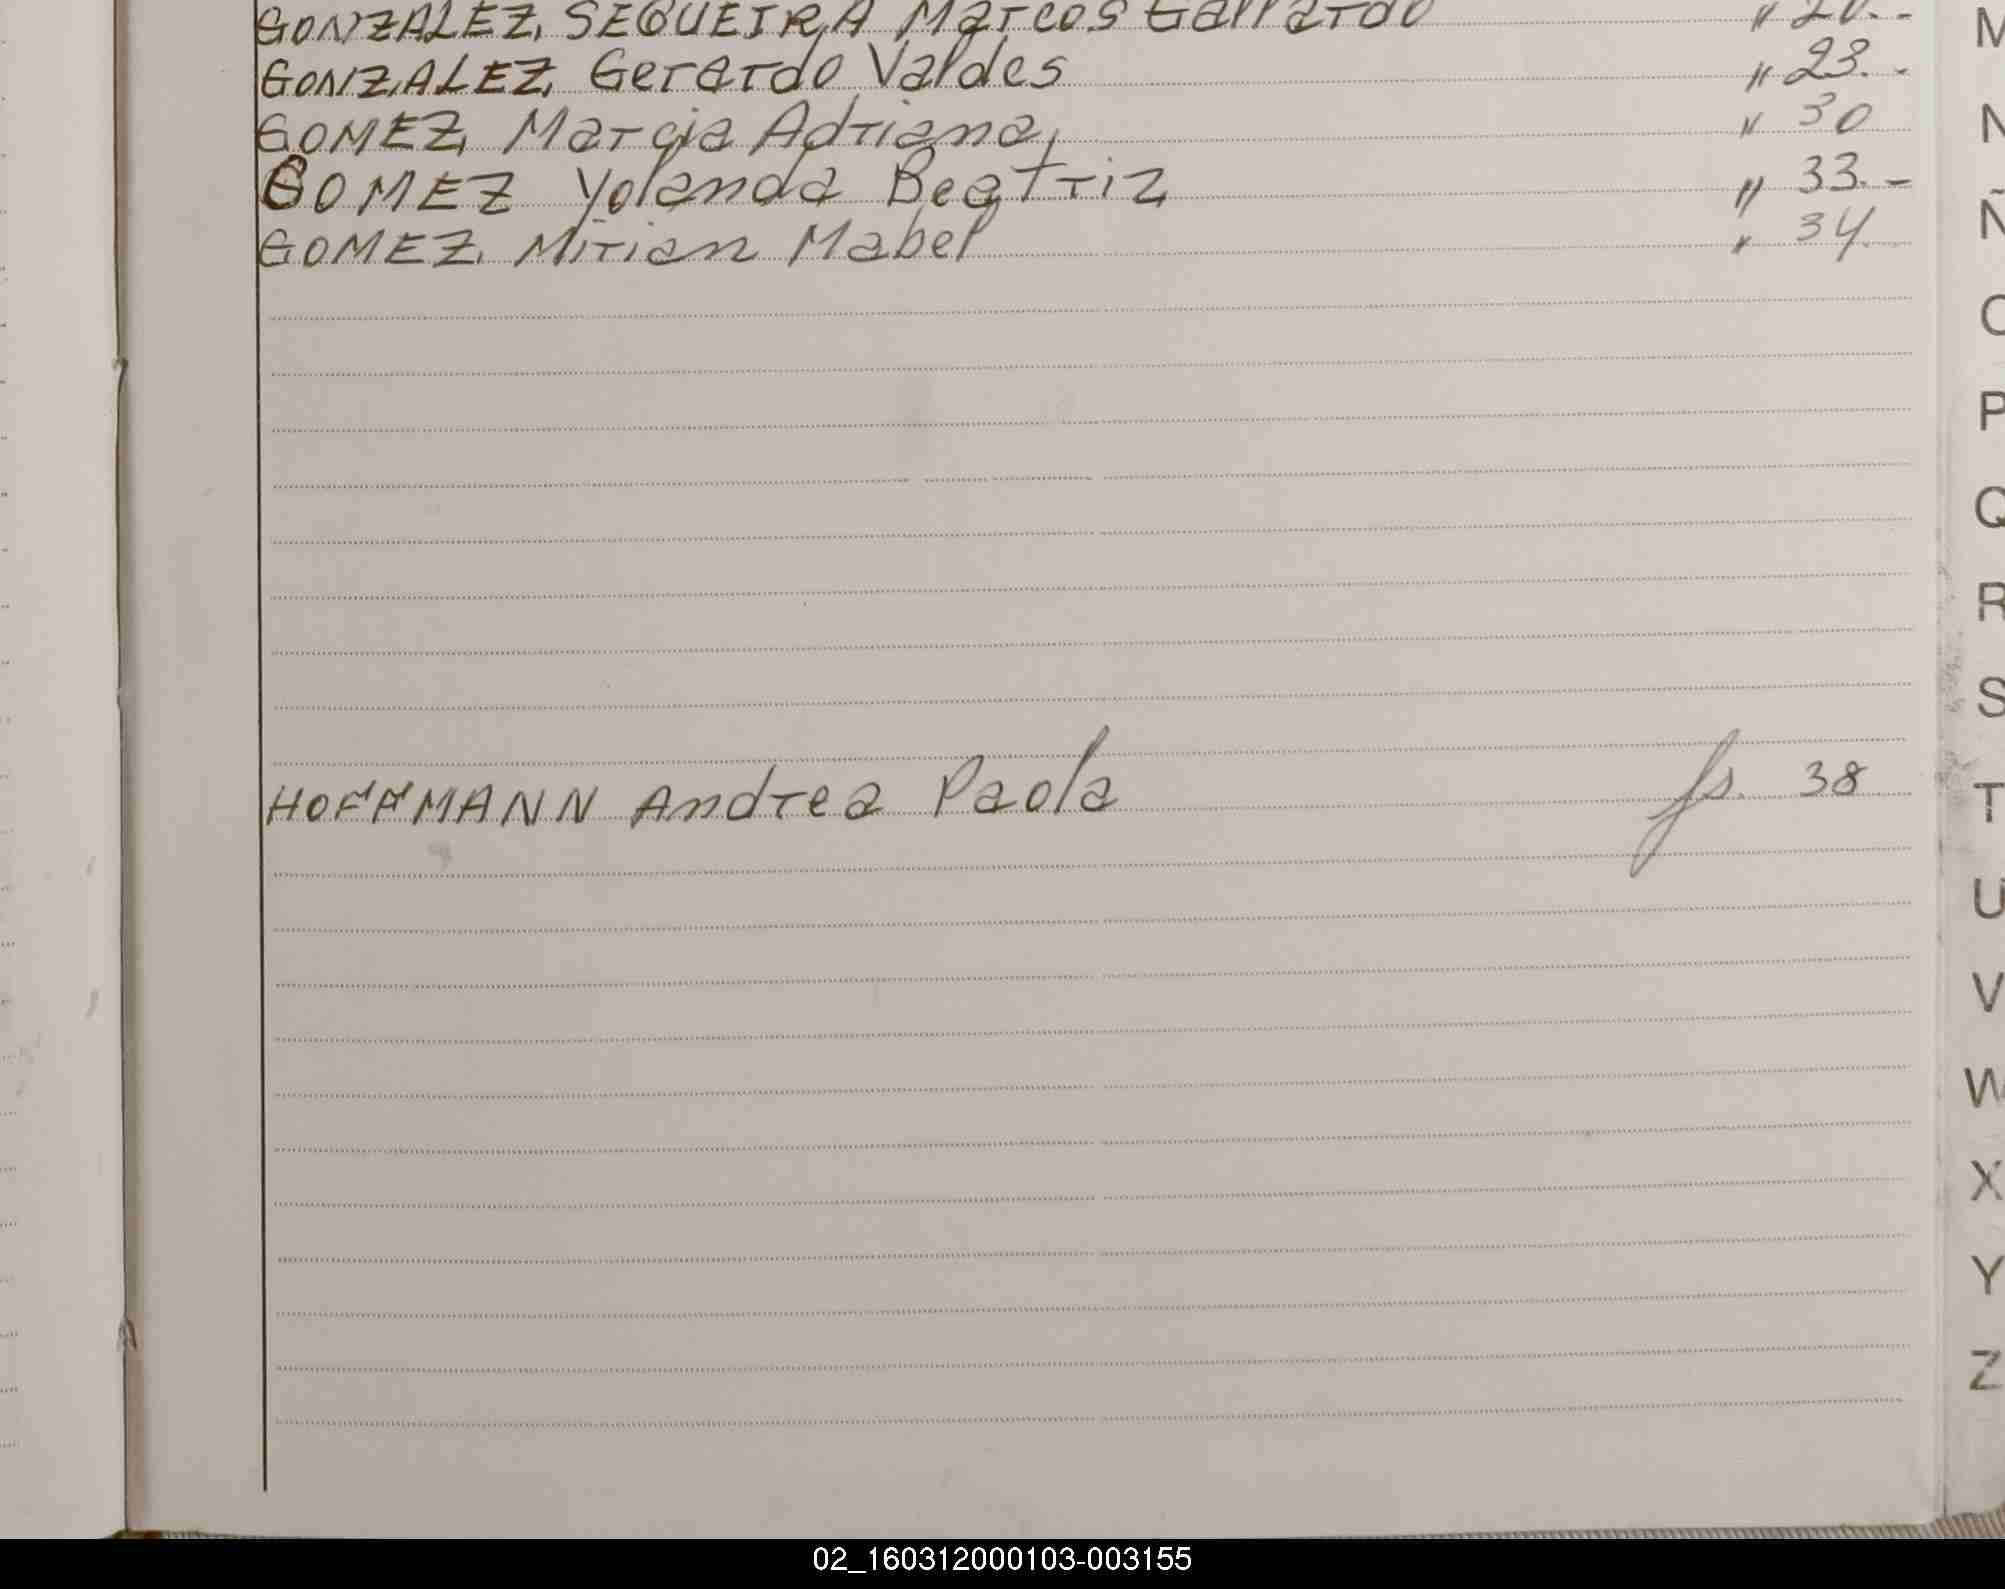 GONZALEZ, SEQUEIRA Marcos Gallardo " 20.-
GONZALEZ, Gerardo Valdes " 23.-
GOMEZ, Marcia Adriana, " 30
GOMEZ Yolanda Beatriz " 33.-
GOMEZ, Mirian Mabel " 34.
HOFFMANN Andrea Paola fs. 38
M
N
Ñ
O
P
Q
R
S
T
U
V
W
X
Y
Z
02_160312000103-003155